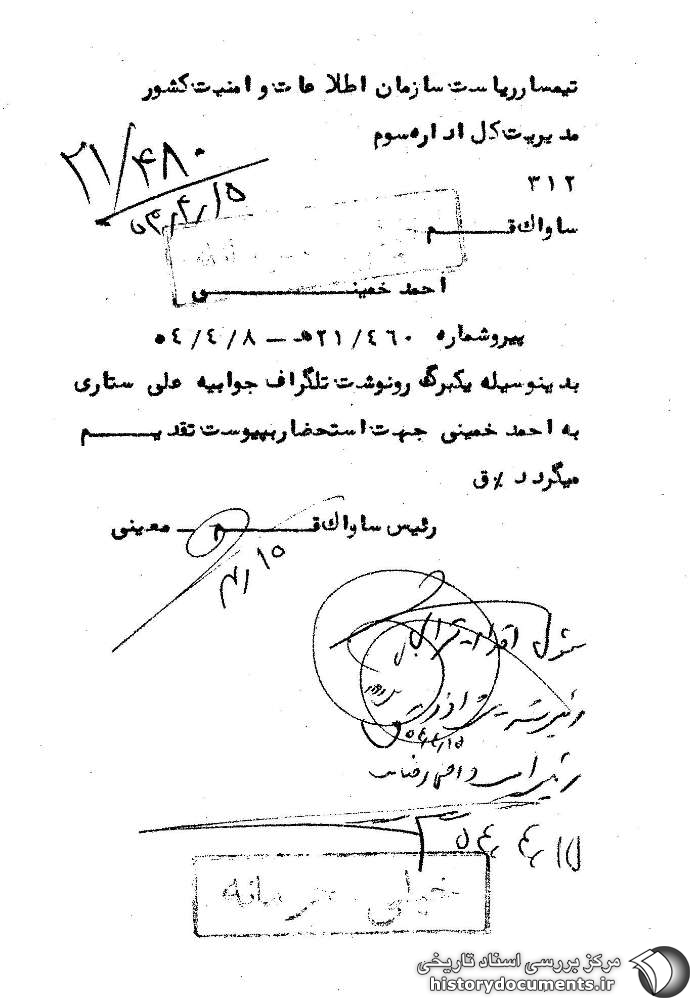 تیمسار ریاست سازمان اطلاعات و امنیت کشور
مدیریت کل اداره سوم
۳۱۲
ساواک قم
۲۱/۴۸۰
۵۴/۴/۱۵
احمد خمینی
پیرو شماره ۲۱/۴۶۰ه‍ – ۵۴/۴/۸
بدینوسیله یکبرگ رونوشت تلگراف جوابیه علی ستاری
به احمد خمینی جهت استحضار بپیوست تقدیم
میگردد ٪ق
رئیس ساواک قم – معینی
۴/۱۵
مسئول اقدام
۵۴/۴/۱۵
خیلی محرمانه
مرکز بررسی اسناد تاریخی
historydocuments.ir